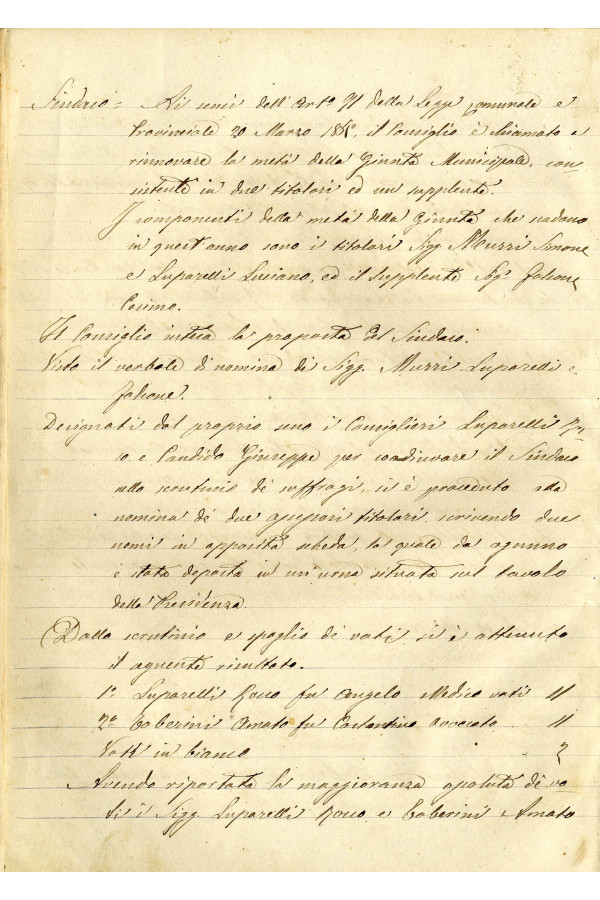 Sindaco = Ai sensi dell'Art.° 71 della Legge comunale e
Provinciale 20 Marzo il Consiglio è chiamato a
rinnovare la metà della Giunta Municipale, con=
sistente in due titolari ed un supplente.
I componenti della metà della Giunta che scadono
in quest'anno sono i titolari Sigg. Murri Simone
e Luparelli Luciano, ed il Supplente Sig.r Falcone
Cosimo.
Il Consiglio intesa la proposta del Sindaco.
Visto il verbale di nomina di Sigg. Murri Luparelli e
Falcone.
Designati dal proprio seno i Consiglieri Luparelli Roc=
co e Candido Giuseppe per coadiuvare il Sindaco
nello scrutinio de' suffragi, si è proceduto alla
nomina de' due assessori titolari, scrivendo due
nomi in apposita scheda, la quale da ognuno
è stata deposta in un'urna situata sul tavolo
della Presidenza.
Dallo scrutinio e spoglio de' voti si è ottenuto
il seguente risultato.
1.° Luparelli Rocco fu Angelo Medico voti 11
2.° Amato fu Costantino avvocato 11
Voti in bianco 2
Avendo riportata la maggioranza assoluta de' vo
ti i Sigg. Luparelli Rocco e Amato